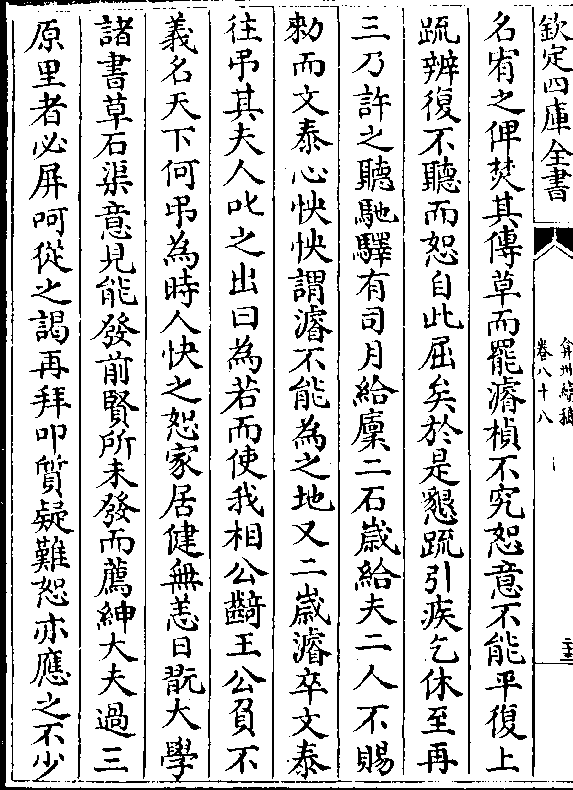 欽定四庫全書
弇州續稿
卷八十八
名宥之俾焚其傳草而罷濬楨不究恕意不能平復上
疏辨復不聽而恕自此屈矣於是懇疏引疾乞休至再
三乃許之聽馳驛有司月給廩二石歲給夫二人不賜
勑而文泰心怏怏謂濬不能為之地又二歲濬卒文泰
往弔其夫人叱之出曰為若而使我相公齮王公負不
義名天下何弔為時人快之恕家居健無恙日翫大學
諸書草石渠意見能發前賢所未發而薦紳大夫過三
原里者必屏呵從之謁再拜叩質疑難恕亦應之不少